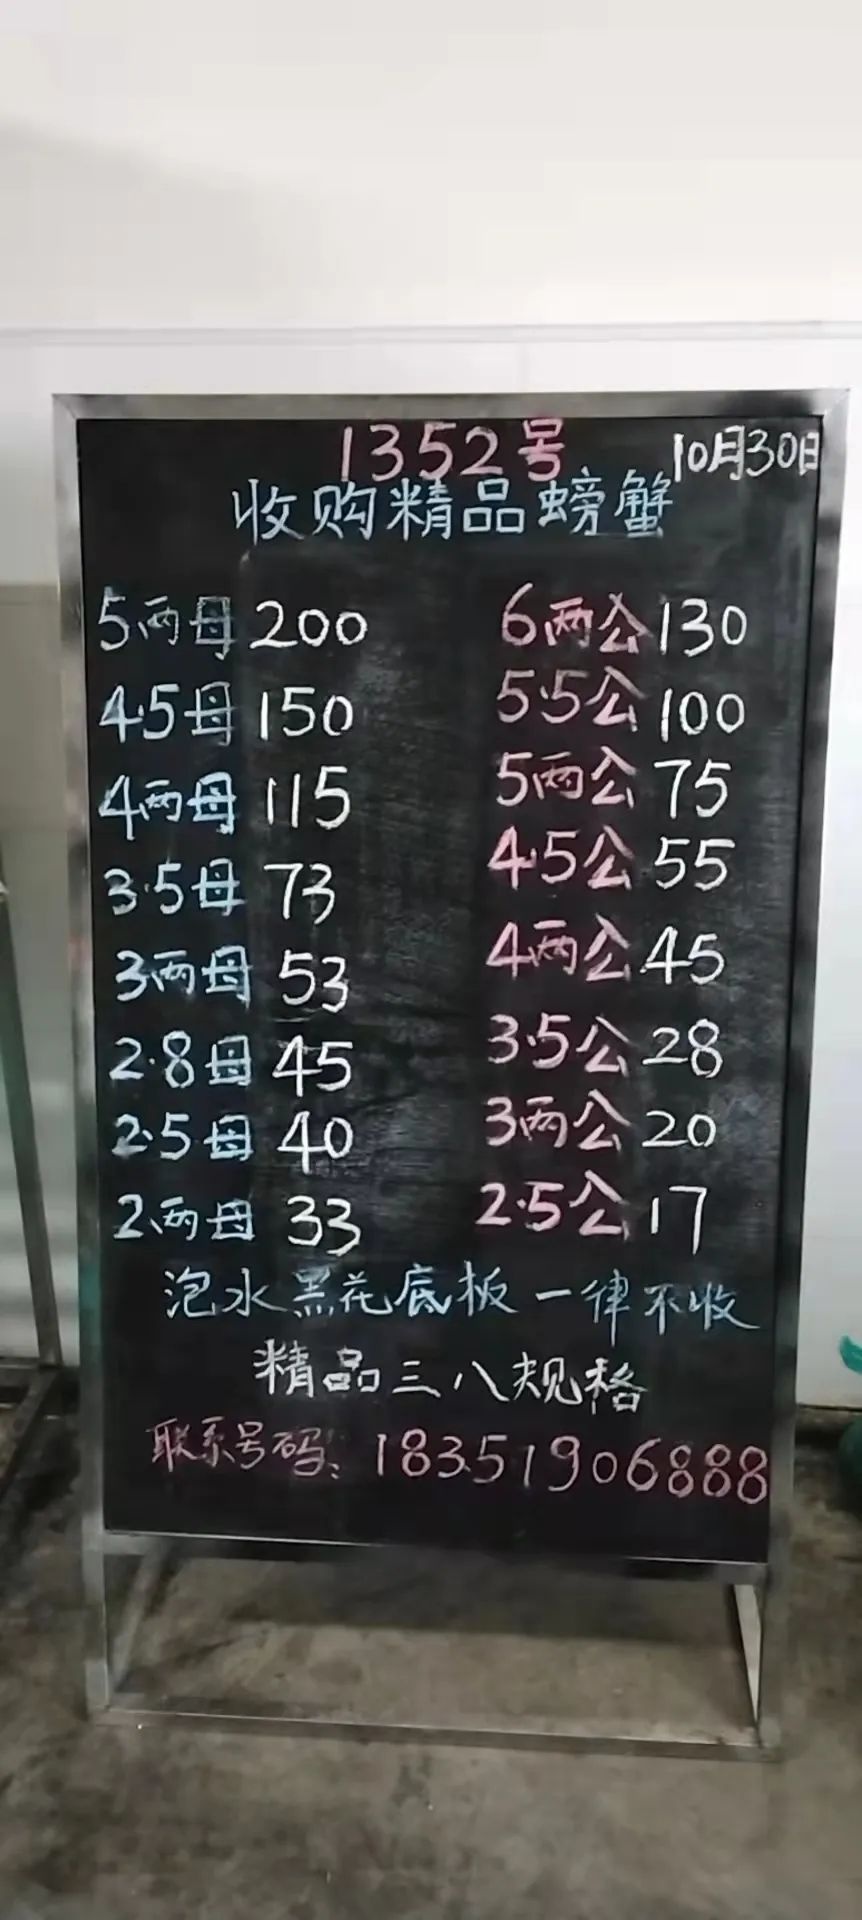 1352号 10月30日
收购精品螃蟹
5两母 200 6两公 130
4.5母 150 5.5公 100
4两母 115 5两公 75
3.5母 73 4.5公 55
3两母 53 4两公 45
2.8母 45 3.5公 28
2.5母 40 3两公 20
2两母 33 2.5公 17
泡水黑花底板一律不收
精品三八规格
联系号码：18351906888